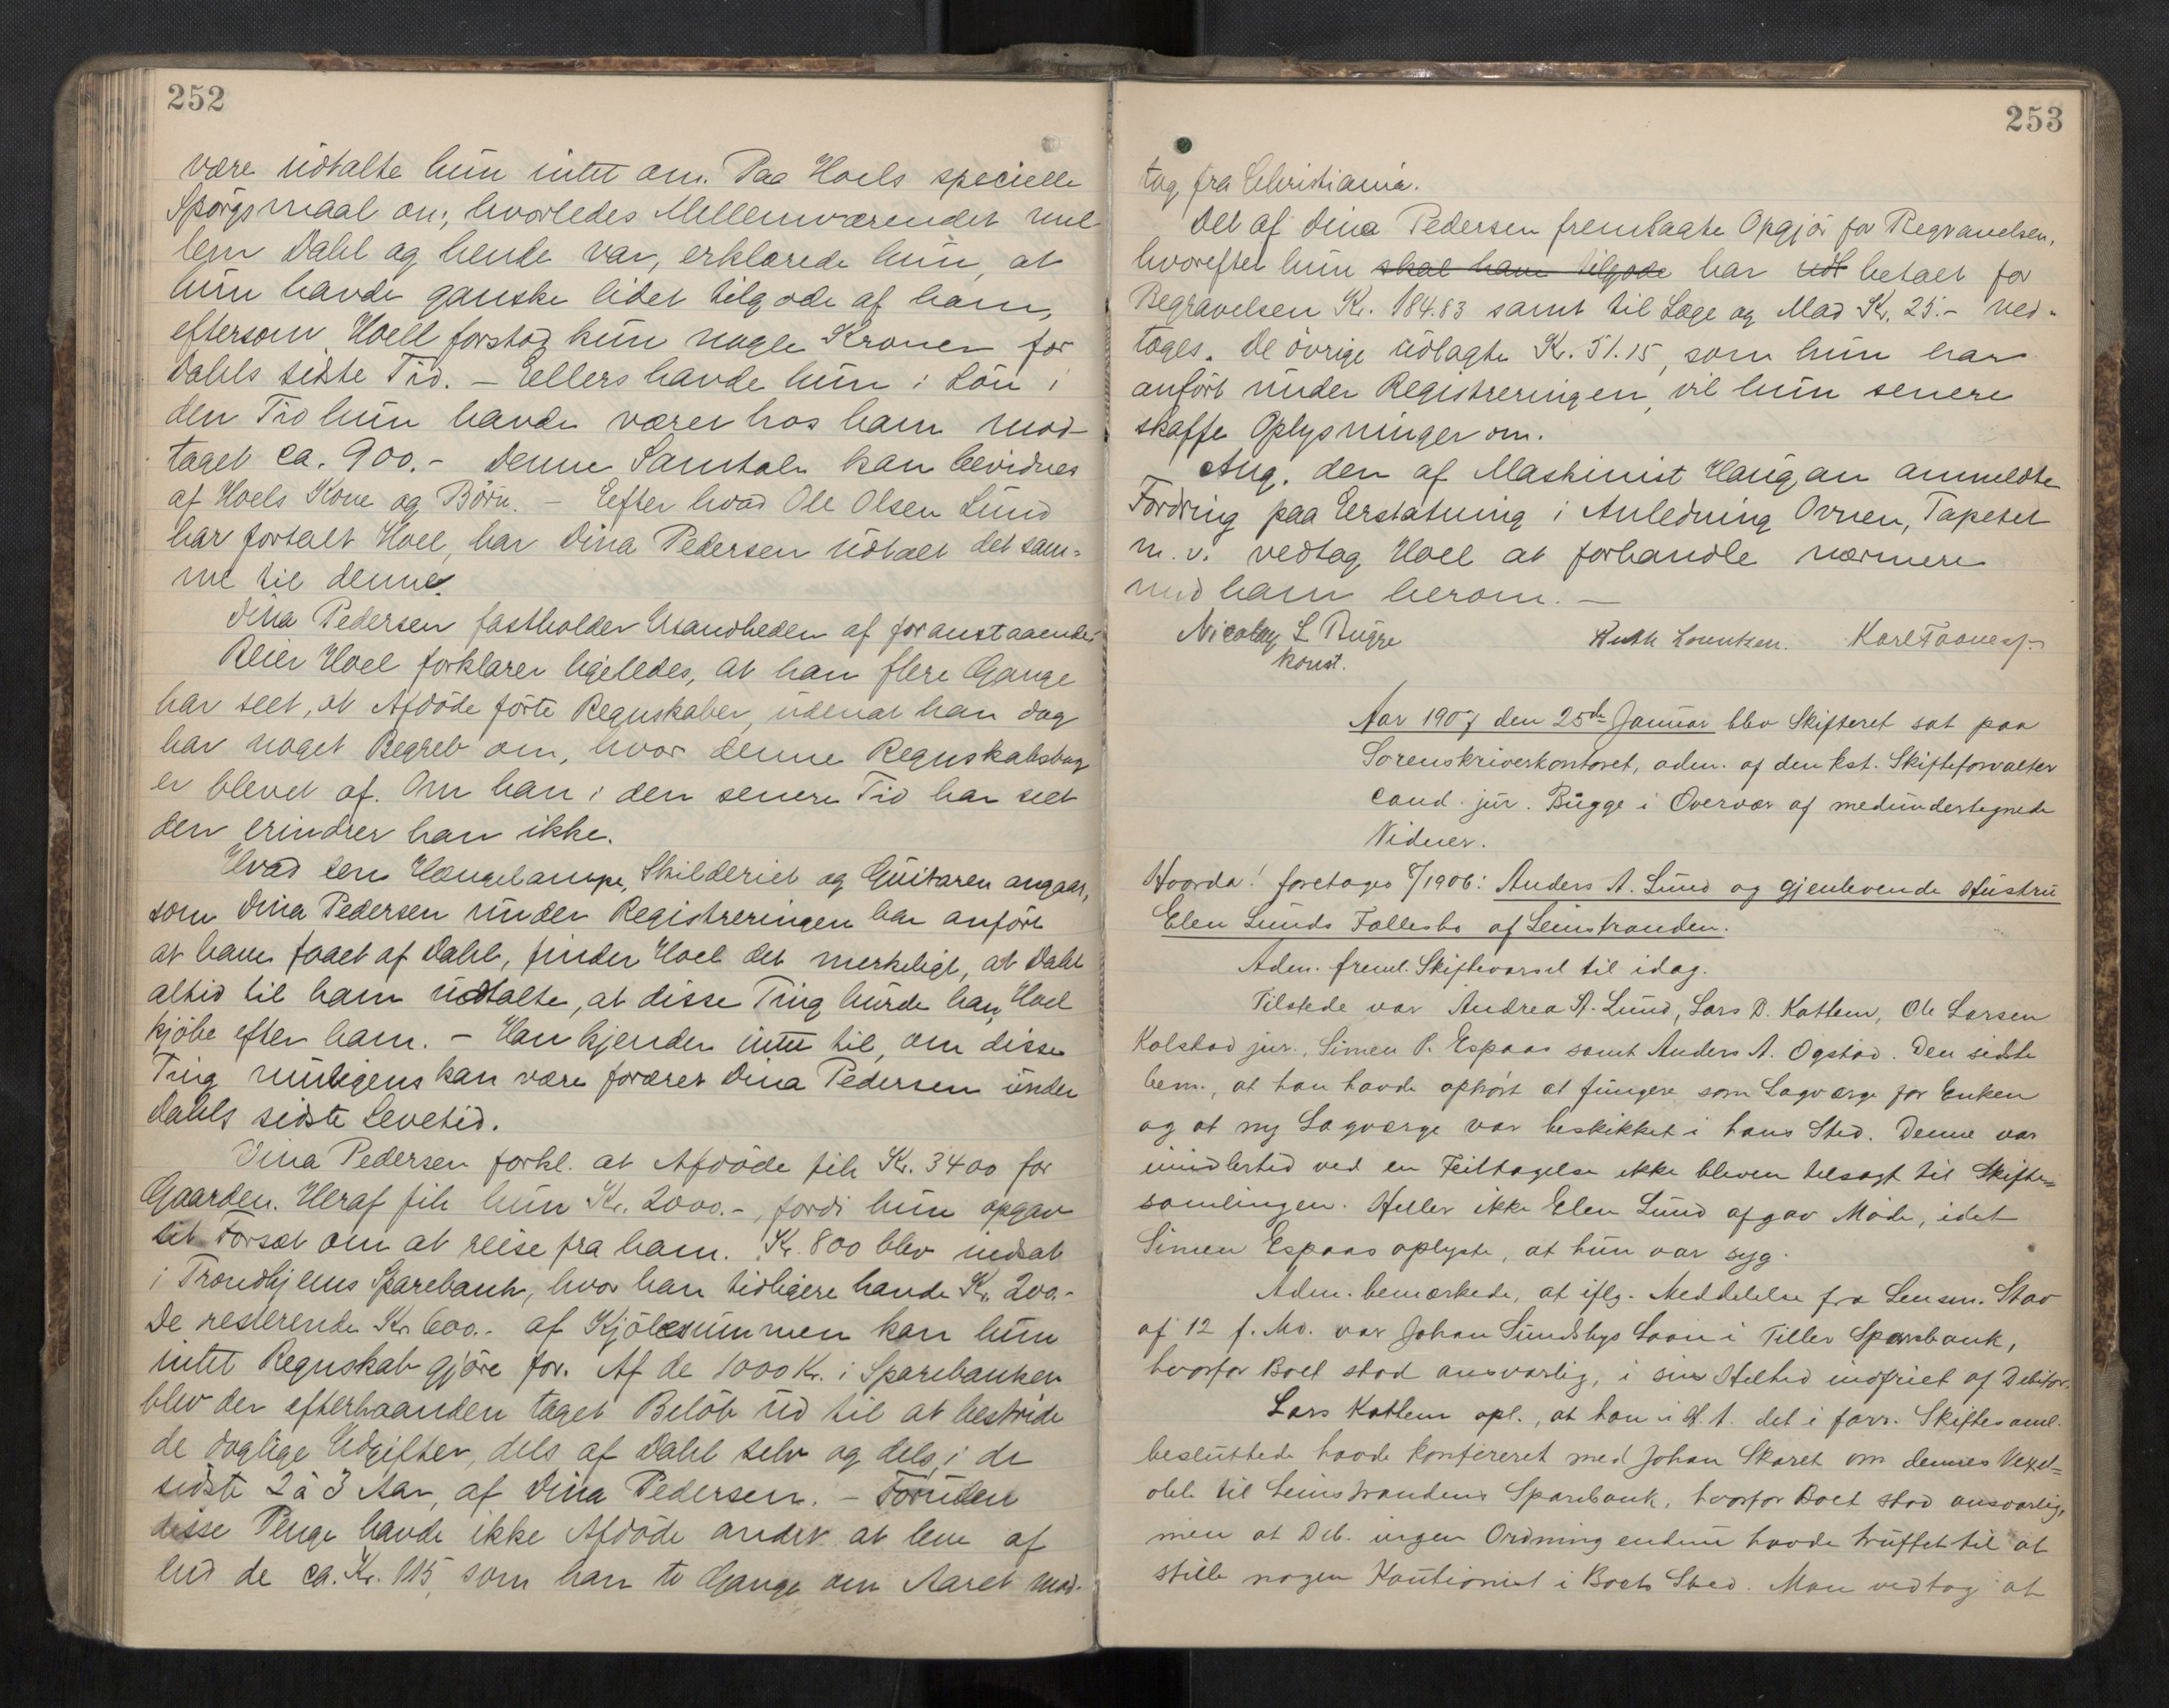 252
være udtalte hun intet om. Paa Hoels specielle
Spörgsmaal om, hvorledes Mellemværendet mel
lem Dahl og hende var, erklærede hun, at
hun havde ganske lidet tilgode af ham,
eftersom Hoell forstod kun nogle Kroner for
Dahls sidste Tid. – Ellers havde hun i Lön i
den Tid hun havde været hos ham mod-
taget ca. 900.- Denne Samtale kan bevidnes
af Hoels Kone og Börn. – Efter hvad Ole Olsen Lund
har fortalt Hoel, har Dina Pedersen udtalt det sam=
me til denne.
Dina Pedersen fastholder Usandheden af foranstaaende.
Reier Hoel forklarer ligeledes, at han flere Gange
har seet, at Afdöde förte Regnskaber, udenat han dog
har noget Begreb om, hvor denne Regnskabsbog
er blevet af. Om han i den senere Tid har seet
den erindrer han ikke.
Hvad den Hængelampe, Skilderiet og Guitaren angaar,
som Dina Pedersen under Registreringen har anfört
at have faaet af Dahl, finder Hoel det merkeligt, at Dahl
altid til ham udtalte, at disse Ting burde han, Hoel
kjöbe efter ham. – Han kjender intet til, om disse
Ting muligens kan være foræret Dina Pedersen under
Dahls sidste Levetid.
Dina Pedersen forkl. at Afdöde fik Kr. 3400 for
Gaarden. Heraf fik hun Kr. 2000.-, fordi hun opgav
sit Forsæt om at reise fra ham. Kr. 800 blev indsat
i Trondhjems Sparebank, hvor han tidligere havde Kr. 200.-
De resterende Kr. 600.- af Kjöbesummen kan hun
intet Regnskab gjöre for. Af de 1000 Kr. i Sparebanken
blev der efterhaanden taget Belöb ud til at bestride
de daglige Udgifter, dels af Dahl selv og dels, i de
sidste 2 à 3 Aar, af Dina Pedersen. – Foruden
disse Penge havde ikke Afdöde andet at leve af
end de ca. Kr. 115, som han to Gange om Aaret mod-
253
tog fra Christiania.
Det af Dina Pedersen fremlagte Opgjör for Begravelsen,
hvorefter hun skal have tilgode har udl betalt for
Begravelsen Kr. 184.83 samt til Læge og Mad Kr. 25.- ved-
toges. De övrige udlagte Kr. 51.15, som hun har
anfört under Registreringen, vil hun senere
skaffe Oplysninger om.
Ang. den af Maskinist Haugan anmeldte
Fordring paa Erstatning i Anledning Ovnen, Tapetet
m. v. vedtog Hoel at forhandle nærmere
med ham herom. –
Nicolay L Bugge
konst.
Ruth Lorentzen.
Aar 1907 den 25de Januar blev Skifteret sat paa
Sorenskriverkontoret, adm. af den kst. Skifteforvalter
cand. jur. Bugge i Overvær af medundertegnede
Vidner.
Hvorda! foretoges 8/1906: Anders A. Lund og gjenlevende Hustru
Elen Lunds Fællesbo af Leinstranden.
Adm. freml. Skiftevarsel til idag.
Tilstede var Andrea A. Lund, Lars D. Kattem, Ole Larsen
Kolstad jur., Simen P. Espaas samt Anders A. Ogstad. Den sidste
bem., at han havde ophört at fungere som Lagværge for Enken
og at ny Lagværge var beskikket i hans Sted. Denne var
imidlertid ved en Feiltagelse ikke bleven tilsagt til Skifte=
samlingen. Heller ikke Elen Lund afgav Möde, idet
Simen Espaas oplyste, at hun var syg.
Adm. bemærkede, at iflg. Meddelelse fra Lensm. Stav
af 12 f. Md. var Johan Sundsbys Laan i Tiller Sparebank,
hvorfor Boet stod ansvarlig, i sin Helhed indfriet af Debitor.
Lars Kattem opl., at han i H. t. det i forr. Skiftesaml.
besluttede havde konfereret med Johan Skaret om dennes Vexel=
obl. til Leinstrandens Sparebank, hvorfor Boet stod ansvarlig,
men at Deb. ingen Ordning endnu havde truffet til at
stille nogen Kautionist i Boets Sted. Man vedtog at